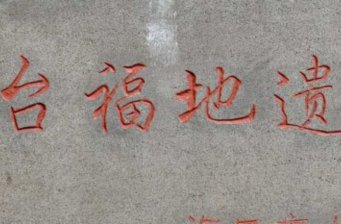 台福地遗